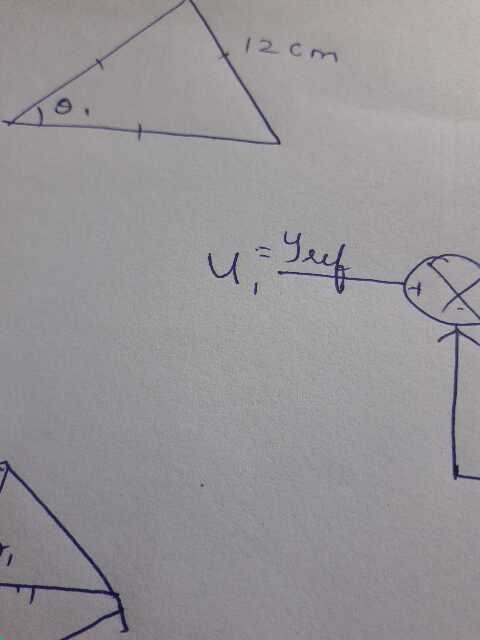 12 cm
θ1
U1 = Yref
+
-